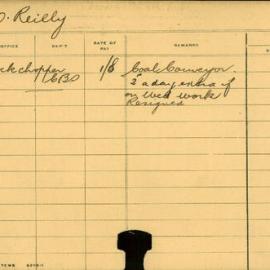 O. Reilly
OFFICE DEP'T RATE OF PAY REMARKS
ckchopper CBD 1/8 Coal Conveyor.
2" a day extra if
on Wet work
Resigned